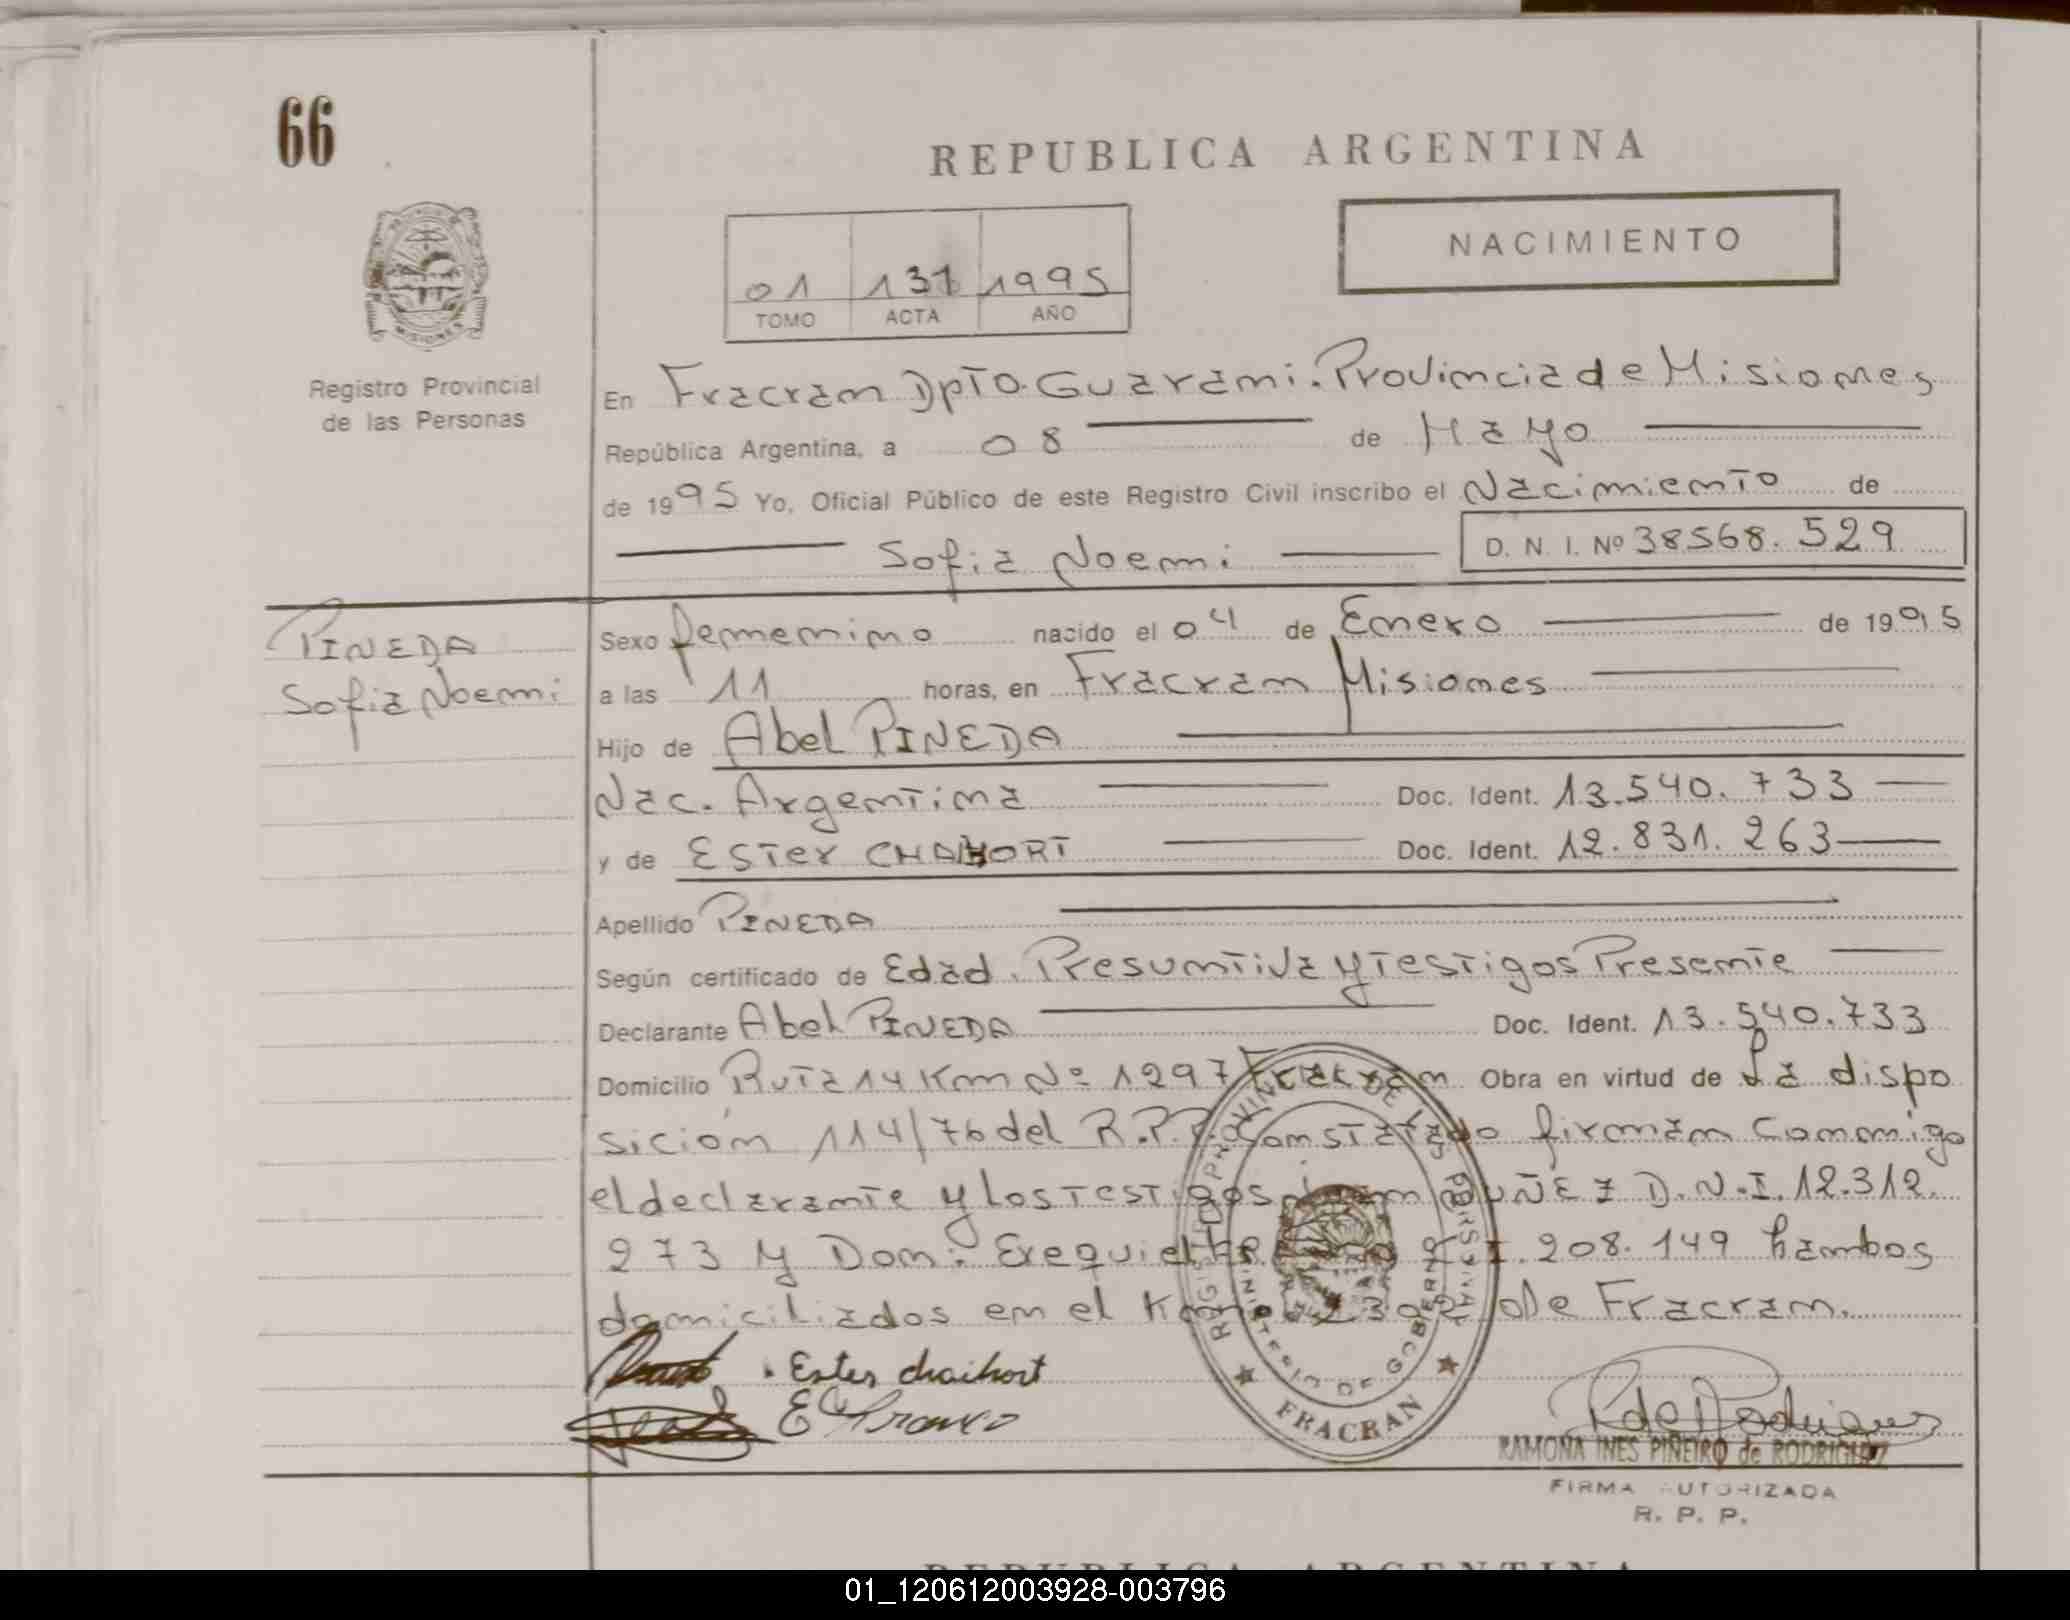 66
REPUBLICA ARGENTINA
NACIMIENTO
01 131 1995
TOMO ACTA AÑO
MISIONES
Registro Provincial
de las Personas
En Fracran Dpto. Guarani. Provincia de Misiones
República Argentina, a 08 de Mayo
de 1995 Yo, Oficial Público de este Registro Civil inscribo el Nacimiento de
Sofia Noemi D. N. I. Nº 38568.529
PINEDA
Sofia Noemi
Sexo femenino nacido el 04 de Enero de 1995
a las 11 horas, en Fracran Misiones
Hijo de Abel PINEDA
Nac. Argentina Doc. Ident. 13.540.733
y de Ester CHAHORT Doc. Ident. 12.831.263
Apellido PINEDA
Según certificado de Edad. Presuntiva y Testigos Presente
Declarante Abel PINEDA Doc. Ident. 13.540.733
Domicilio Ruta 14 Km Nº 1297 Fracran Obra en virtud de La dispo
sición 114/76 del R.P.P. Constatado firman conmigo
el declarante y los testigos NUÑEZ D.N.I. 12.312.
273 y Don: Exequiel 208.149 hambos
domiciliados en el Km de Fracran.
Ester chaihort
E Franco
REGISTRO PROVINCIAL DE LAS PERSONAS
MINISTERIO DE GOBIERNO
FRACRAN
RAMONA INES PIÑEIRO de RODRIGUEZ
FIRMA AUTORIZADA
R. P. P.
REPUBLICA ARGENTINA
01_120612003928-003796